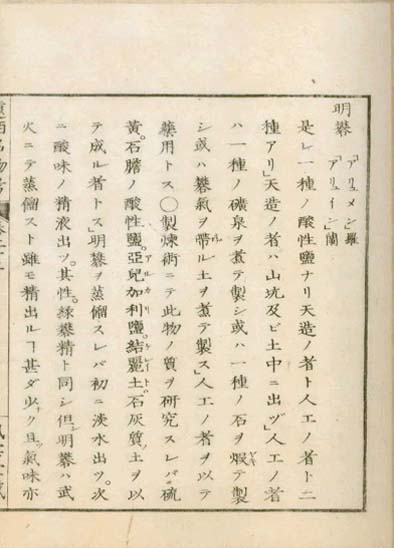 明礬 「アリュメン」羅
「アリュイン」蘭
是レ一種ノ酸性鹽ナリ天造ノ者ト人工ノ者ト二
種アリ」天造ノ者ハ山坑及ビ土中ニ出ヅ」人工ノ者
ハ一種ノ礦泉ヲ煮テ製シ或ハ一種ノ石ヲ煆テ製
シ或ハ礬氣ヲ帶ル土ヲ煮テ製ス」人工ノ者ヲ以テ
藥用トス○製煉術ニテ此物ノ質ヲ研究スレバ硫
黄。石膽ノ酸性鹽。亞兒加利鹽。結麗土。石灰質ノ土ヲ以
テ成ル者トス」明礬ヲ蒸餾スレバ初ニ淡水出ツ。次
ニ酸味ノ精液出ツ。其性。緑礬精ト同シ但。明礬ハ武
火ニテ蒸餾スト雖モ精出ルヿ甚ダ少ク且ツ氣味亦